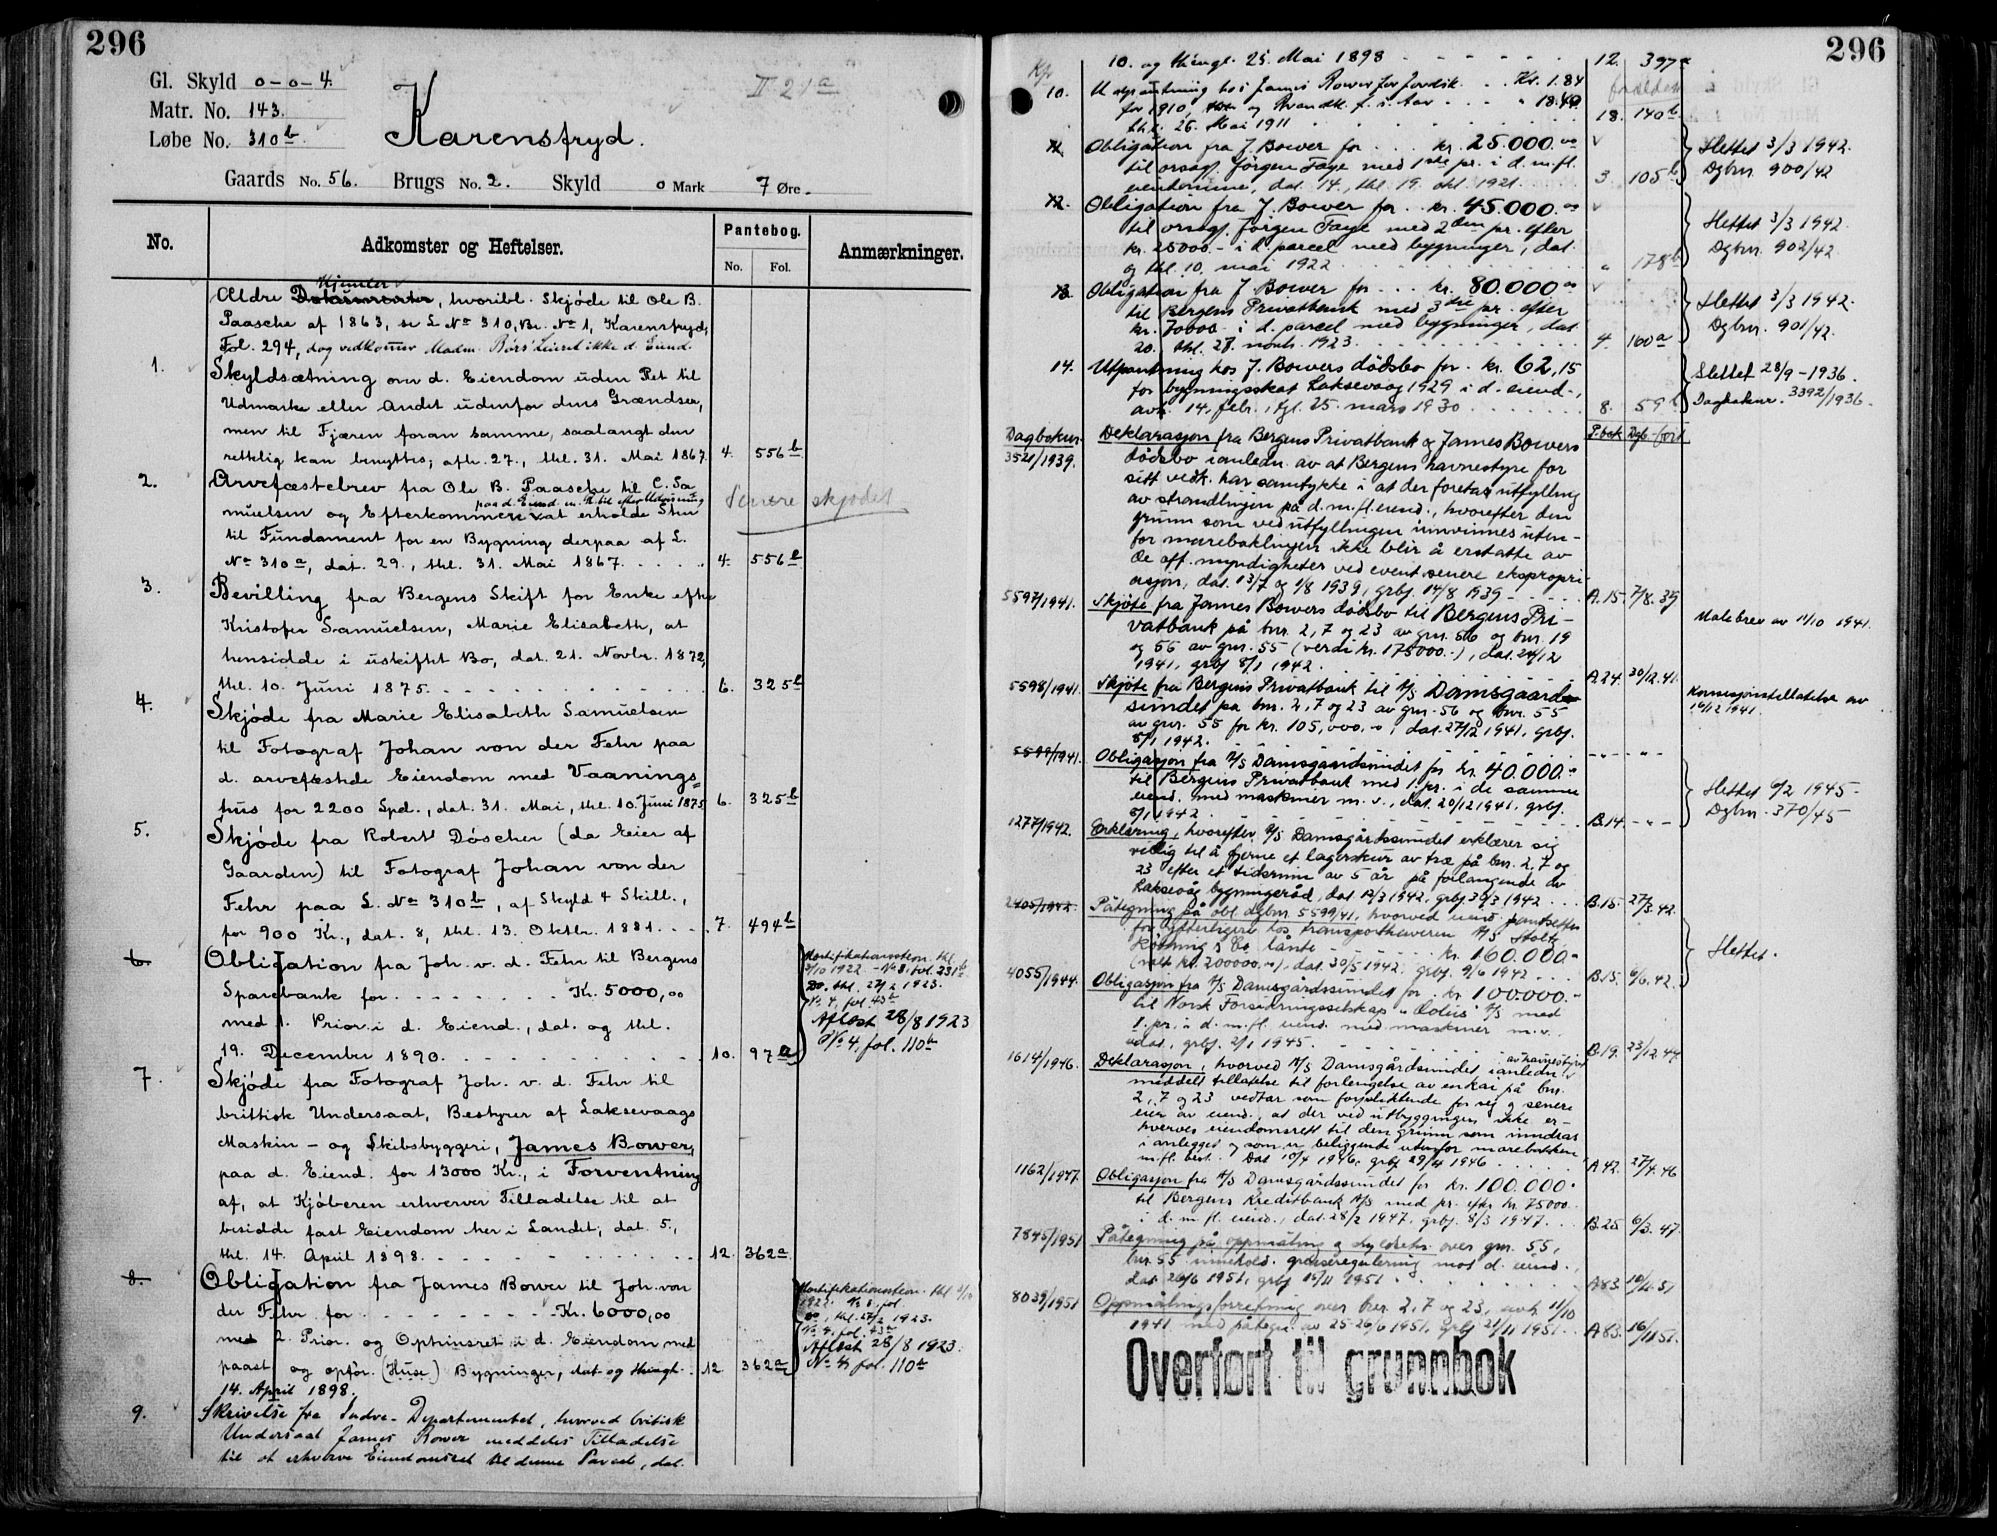 296
Gl. Skyld 0-0-4.
Matr. No. 143.
Løbe No. 310b.
II 21a
Karensfryd.
Gaards No. 56. Brugs No. 2. Skyld 0 Mark 7 Øre.
No. Adkomster og Heftelser. Pantebog. No. Fol. Anmærkninger.
Hjemler
Ældre Dokumenter, hvoribl. Skjøde til Ole B.
Paasche af 1863, se L No 310, Br. No 1, Karensfryd,
Fol. 294, dog vedkommer Madm. Børs' Leieret ikke d. Eiend.
1. Skyldsætning om d. Eiendom uden Ret til
Udmarke eller Andet udenfor dens Grændser,
men til Fjæren foran samme, saalangt den
rettelig kan benyttes; afh. 27., thl. 31. Mai 1867. 4. 556b
2. Arvefæstebrev fra Ole B. Paasche til C. Sa
paa d. Eiend. m. R. til efter Udvisning
muelsen og Efterkommere at erholde Sten
til Fundament for en Bygning derpaa af L.
No 310a, dat. 29., thl. 31. Mai 1867. 4. 556b
Senere skjødet
3. Bevilling fra Bergens Skift for Enke efter
Kristofer Samuelsen, Marie Elisabeth, at
hensidde i uskiftet Bo, dat. 21. Novbr. 1872,
thl. 10. Juni 1875. 6. 325b
4. Skjøde fra Marie Elisabeth Samuelsen
til Fotograf Johan von der Fehr paa
d. arvefæstede Eiendom med Vaanings=
hus for 2200 Spd., dat. 31. Mai, thl. 10. Juni 1875 6. 325b
5. Skjøde fra Robert Døscher (da Eier af
Gaarden) til Fotograf Johan von der
Fehr paa L. No 310b, af Skyld 4 Skill.,
for 900 Kr., dat. 8, thl. 13. Oktbr. 1881. 7. 494b
6. Obligation fra Joh. v. d. Fehr til Bergens
Sparebank for Kr. 5000,00
med 1. Prior. i d. Eiend., dat. og thl.
19. December 1890. 10. 97a
Mortifikationsstevn. thl.
3/10 1922 - No 3. fol. 231b
Do. thl. 27/2 1923.
No 4, fol 43b
Aflæst 28/8 1923
No 4, fol. 110b
7. Skjøde fra Fotograf Joh. v. d. Fehr til
brittisk Undersaat, Bestyrer af Laksevaags
Maskin- og Skibsbyggeri, James Bower,
paa d. Eiend. for 13000 Kr., i Forventning
af, at Kjøberen erhverver Tilladelse til at
besidde fast Eiendom her i Landet, dat. 5.,
thl. 14. April 1898. 12. 362a
8. Obligation fra James Bower til Joh. von
der Fehr for Kr. 6000,00
med 2. Prior. og Opthinsret i d. Eiendom med
paast. og opfør. (Huse) Bygninger, dat. og thingl. 12 362a
14. April 1898.
Mortifikationsstevn. thl 3/10
1922. No 3. fol.
Do, thl. 27/2 1923.
No 4. fol. 43b
Aflæst 28/8 1923.
No 4, fol. 110b
9. Skrivelse fra Indre-Departementet, hvorved britisk
Undersaat James Bower meddeles Tilladelse
til at erhverve Eiendomsret til denne Parcel, dat.
296
10. og thingl. 25. Mai 1898 12. 397a
10. Udpantning hos James Bower for Jordsk. Kr. 1.84
for 1910, og Brandk. f. s. Aar " 18.40
thl. 26. Mai 1911 18. 140b
forældet
11. Obligation fra J. Bower for kr. 25.000.00
til orsagf. Jörgen Faye med 1ste pr. i d. m. fl.
eiendomme, dat. 14., thl. 19. okt. 1921. 3. 105b
Slettet 3/3 1942.
Dgbnr. 900/42
12. Obligation fra J. Bower for kr. 45.000.00
til orsagf. Jörgen Faye med 2den pr. efter
kr. 25000.- i d. parcel med bygninger, dat.
og thl. 10. mai 1922 " 178b
Slettet 3/3 1942
Dgbnr. 902/42.
13. Obligation fra J. Bower for kr. 80.000.00
til Bergens Privatbank med 3die pr. efter
kr. 70000.- i d. parcel med bygninger, dat.
20. thl. 27. novb. 1923. 4. 160a
Slettet 3/3 1942.
Dgbnr. 901/42.
14. Utpantning hos J. Bowers dødsbo for kr. 62,15
for bygningsskat Laksevaag 1929 i d. eiend.,
avh. 14. febr., tgl. 25. mars 1930 8. 59b
Slettet 28/9-1936.
Dagboknr. 3392/1936.
Dagboknr. P.bok Dgb-ført
3521/1939. Deklarasjon fra Bergens Privatbank og James Bowers
dødsbo i anledn. av at Bergens havnestyre for
sitt vedk. har samtykke i at der foretas utfylling
av strandlinjen på d. m. fl. eiend., hvorefter den
grunn som ved utfyllingen innvinnes uten-
for marebaklinjen ikke blir å erstatte av
de off. myndigheter ved event. senere ekspropri-
asjon, dat. 13/7 og 1/8 1939, grbf. 14/8 1939 A.15. 7/8.39
5597/1941. Skjøte fra James Bowers dødsbo til Bergens Pri-
vatbank på bnr. 2, 7 og 23 av gnr. 56 og bnr. 19
og 55 av gnr. 55 (verdi kr. 175000.-), dat. 24/12
1941, grbf 8/1 1942. A.24. 30/12.41.
Målebrev av 11/10 1941.
5598/1941. Skjøte fra Bergens Privatbank til A/S Damsgaards-
sundet på bnr. 2, 7 og 23 av gnr. 56 og bnr. 55
av gnr. 55 for kr. 105,000.-, dat. 27/12 1941, grbf.
8/1 1942. " "
Konsesjonstillatelse av
16/12 1941.
5599/1941. Obligasjon fra A/S Damsgaardsundet for kr. 40.000.-
til Bergens Privatbank med 1. pr. i de samme
eiend. med maskiner m. v., dat. 20/12 1941, grbf.
8/1 1942. B.14. " "
Slettet 6/2 1945-
Dgbnr. 370/45
1277/1942. Erklæring, hvorefter A/S Damsgårdssundet erklærer sig
villig til å fjerne et lagerskur av træ på bnr. 2, 7 og
23 efter et tidsrum av 5 år på forlangende av
Laksevåg bygningsråd, dat 12/3 1942, grbf 30/3 1942 B.15. 27/3.42.
2405/1942. Påtegning på obl. dgbnr. 5599/41, hvorved eiend. pantsettes
for ytterligere hos transporthaveren A/S Stoltz
Røthing & Co lånte kr. 160.000.-
(ialt kr. 200000.-), dat. 30/5 1942, grbf. 9/6 1942 B.15. 6/6.42.
Slettet.
4055/1944. Obligasjon fra A/S Damsgårdssundet for kr. 100.000.-
til Norsk Forsikringsselskap "Æolus" A/S med
1. pr. i d. m. fl. eiend. med maskiner m.v.
udat., grbf. 2/1 1945. B.19. 23/12.44.
1614/1946. Deklarasjon, hvorved A/S Damsgårdsundet i anledn. av havnestyrets
meddelt tillatelse til forlengelse av en kai på bnr.
2, 7 og 23 vedtar som forpliktende for sig og senere
eier av eiend., at der ved utbyggingen ikke er-
hverves eiendomsrett til den grunn som inndras
i anlegget og som er beliggende utenfor marebakken
m. fl. best. Dat 10/4 1946, grbf 29/4 1946 A 42. 27/4.46
1162/1947. Obligasjon fra A/S Damsgårdssundet for kr. 100.000.-
til Bergens Kreditbank A/S med pr. efter kr. 75000.-
i d. m. fl. eiend., dat. 28/2 1947, grbf. 8/3 1947. B.25 6/3.47.
7845/1951 Påtegning på oppmåling og skyldsetn. over gnr. 55,
bnr. 55 innehold. grenseregulering mot d. eiend.,
dat. 26/6 1951, grbf 15/11 1951 A83. 10/11.51
8039/1951 Oppmålingsforretning over bnr. 2, 7 og 23, avh. 11/10
1941 med påtegn. av 25-26/6 1951, grbf 21/11 1951. A83. 16/11.51.
Overført til grunnbok